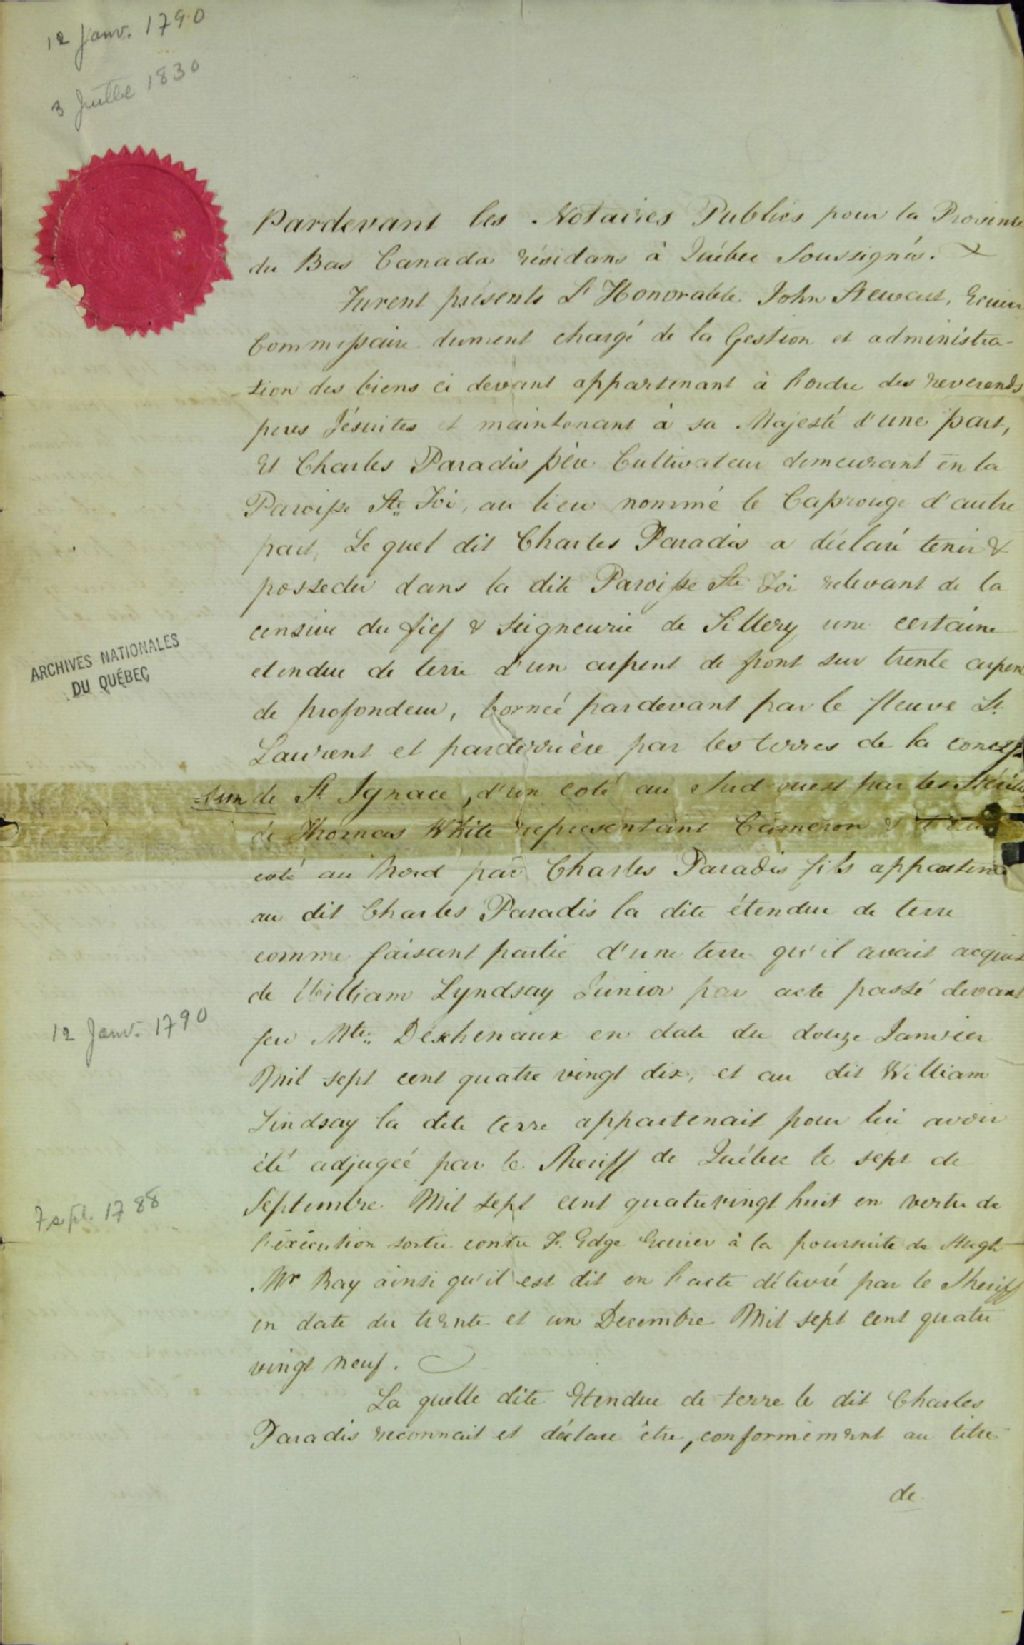 12 Janv. 1790
3 Juillet 1830
Pardevant les Notaires Publics pour la Province
du Bas Canada résidans à Québec Soussignés.
Furent présents L'Honorable John Stewart, Ecuier
Commissaire dument chargé de la Gestion et administra-
tion des biens ci devant appartenant à l'ordre des reverends
peres Jésuites et maintenant à sa Majesté d'une part,
Et Charles Paradis père Cultivateur demeurant en la
Paroisse Ste Foi, au lieu nommé le Caprouge d'autre
part, Le quel dit Charles Paradis a déclaré tenir &
posseder dans la dite Paroisse Ste Foi relevant de la
censive du fief & Seigneurie de Sillery une certaine
etendue de terre d'un arpent de front sur trente arpens
de profondeur, bornée pardevant par le fleuve St.
Laurent et parderrière par les terres de la conces-
sion de St Ignace, d'un coté au Sud ouest par les
de Thomas White representant Cameron &
coté au Nord par Charles Paradis fils appartenant
au dit Charles Paradis la dite étendue de terre
comme faisant partie d'une terre qu'il avait acquis
de William Lyndsay Junior par acte passé devant
feu Mtre Deschenaux en date du douze Janvier
Mil sept cent quatre vingt dix, et au dit William
Lindsay la dite terre appartenait pour lui avoir
été adjugée par le Sheriff de Québec le sept de
Septembre Mil sept cent quatrevingt huit en vertu de
l'exécution sortie contre F. Edge Ecuier à la poursuite de Hugh
Mr Kay ainsi qu'il est dit en l'acte délivré par le Sheriff
en date du trente et un Decembre Mil sept cent quatre
vingt neuf.
La quelle dite Etendue de terre le dit Charles
Paradis reconnait et déclare être, conformément au titre
de
ARCHIVES NATIONALES
DU QUÉBEC
12 Janv. 1790
7 sept. 1788